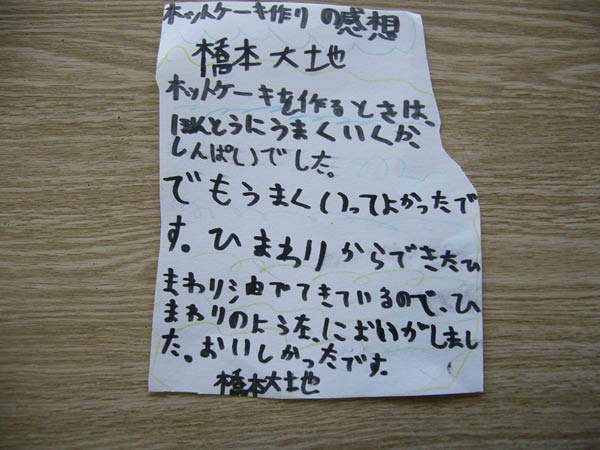 ホットケーキ作りの感想
橋本大地
ホットケーキを作るときは、
ほんとうにうまくいくか、
しんぱいでした。
でもうまくいってよかったで
す。ひまわりからできたひ
まわり油でてきているので、ひ
まわりのような、においがしまし
た。おいしかったです。
橋本大地